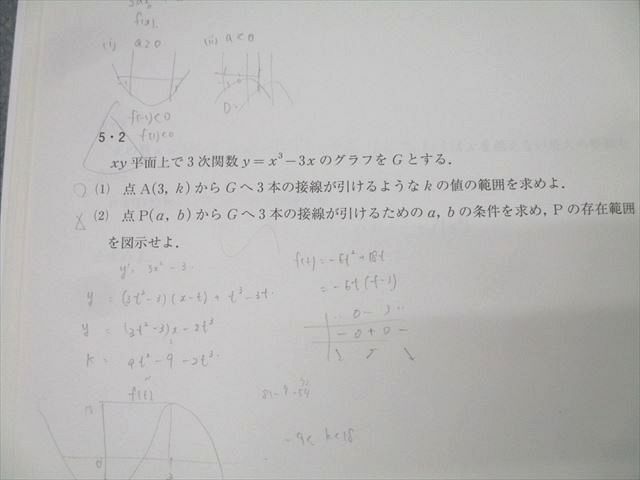 f(x).
(i) a≥0 (ii) a<0
f(-1)<0
f(1)<0
5・2
xy 平面上で3次関数 y=x³-3x のグラフを G とする.
(1) 点 A(3, k) から G へ3本の接線が引けるような k の値の範囲を求めよ.
(2) 点 P(a, b) から G へ3本の接線が引けるための a, b の条件を求め, P の存在範囲
を図示せよ.
y' = 3x²-3.
f'(t) = -6t²+18t
= -6t(t-3)
y = (3t²-3)(x-t) + t³-3t.
y = (3t²-3)x-2t³
k = 9t²-9-2t³.
‥ 0 ‥ 3 ‥
- 0 + 0 -
f(t)
-9< k<18